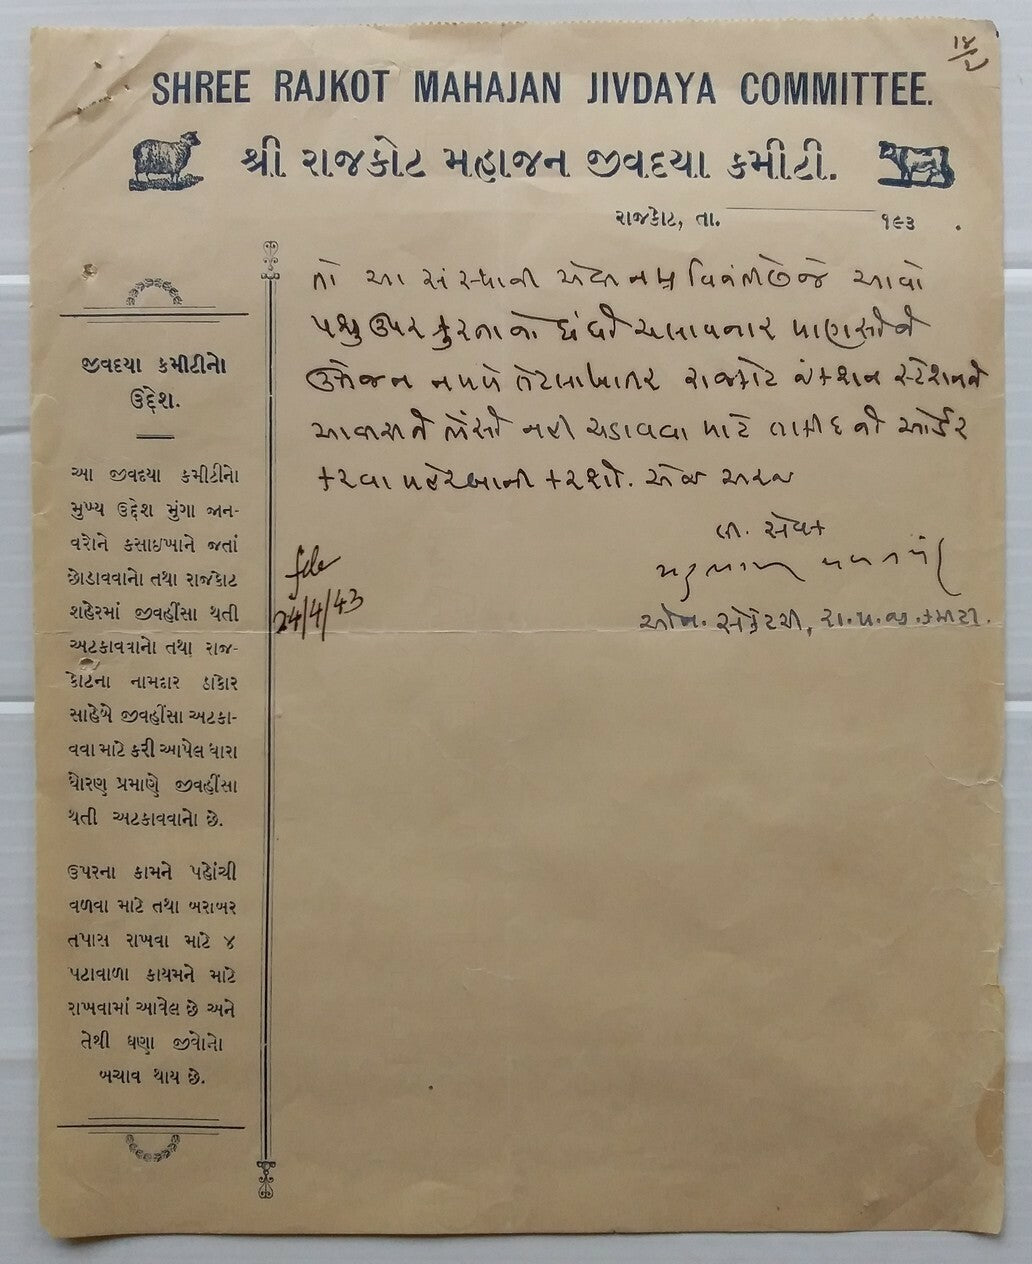 SHREE RAJKOT MAHAJAN JIVDAYA COMMITTEE.
શ્રી રાજકોટ મહાજન જીવદયા કમીટી.
રાજકોટ, તા. ૧૯૩ .
જીવદયા કમીટીનો
ઉદ્દેશ.
આ જીવદયા કમીટીનો
મુખ્ય ઉદ્દેશ મુંગા જાન-
વરોને કસાઇખાને જતાં
છોડાવવાનો તથા રાજકોટ
શહેરમાં જીવહીંસા થતી
અટકાવવાનો તથા રાજ-
કોટના નામદાર ઠાકોર
સાહેબે જીવહીંસા અટકા-
વવા માટે કરી આપેલ ધારા
ધોરણ પ્રમાણે જીવહીંસા
થતી અટકાવવાનો છે.
ઉપરના કામને પહોંચી
વળવા માટે તથા બરાબર
તપાસ રાખવા માટે ૪
પટાવાળા કાયમને માટે
રાખવામાં આવેલ છે અને
તેથી ઘણા જીવોનો
બચાવ થાય છે.
તો આ સંસ્થાની એવી નમ્ર વિનંતી છે જે આવો
પશુ ઉપર ક્રુરતાનો ધંધો ચલાવનાર માણસોને
ઉત્તેજન ન મળે તેટલા ખાતર રાજકોટ જંકશન સ્ટેશનને
ભેંસો નહી ચડાવવા માટે તાકીદનો ઓર્ડર
કરવા મહેરબાની કરશો. એજ અરજ
લી. સેવક
ઓન. સેક્રેટરી, રા. મ. જી. કમીટી.
file
24/4/43